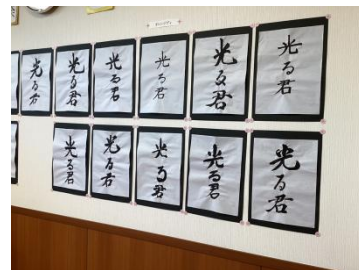 光る君
光る君
光る君
光る君
光る君
光る君
光る君
光る君
光る君
光る君
光る君